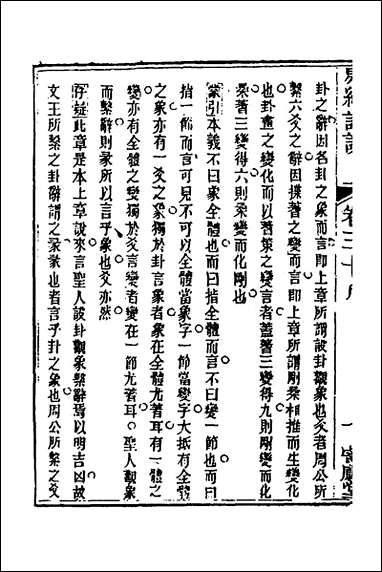 卦之辭因各卦之象而言卽上章所謂設卦觀象也爻者周公所
繫六爻之辭因揲蓍之變而言卽上章所謂剛柔相推而生變化
也卦畫之變化而以蓍策之變言者蓋蓍三變得九則剛變而化
柔蓍三變得六則柔變而化剛也
蒙引本義不曰象全體也而曰指全體而言不曰變一節也而曰
指一節而言可見不可以全體當象字一節當變字大抵有全體
之象亦有一爻之象獨於卦言象者象在全體尤著耳有一體之
變亦有全體之變獨於爻言變者變在一節尤著耳聖人觀象
而繫辭則彖所以言乎象也爻亦然
存疑此章是本上章說來言聖人設卦觀象繫辭焉以明吉凶故
文王所繫之卦辭謂之彖彖也者言乎卦之象也周公所繫之爻